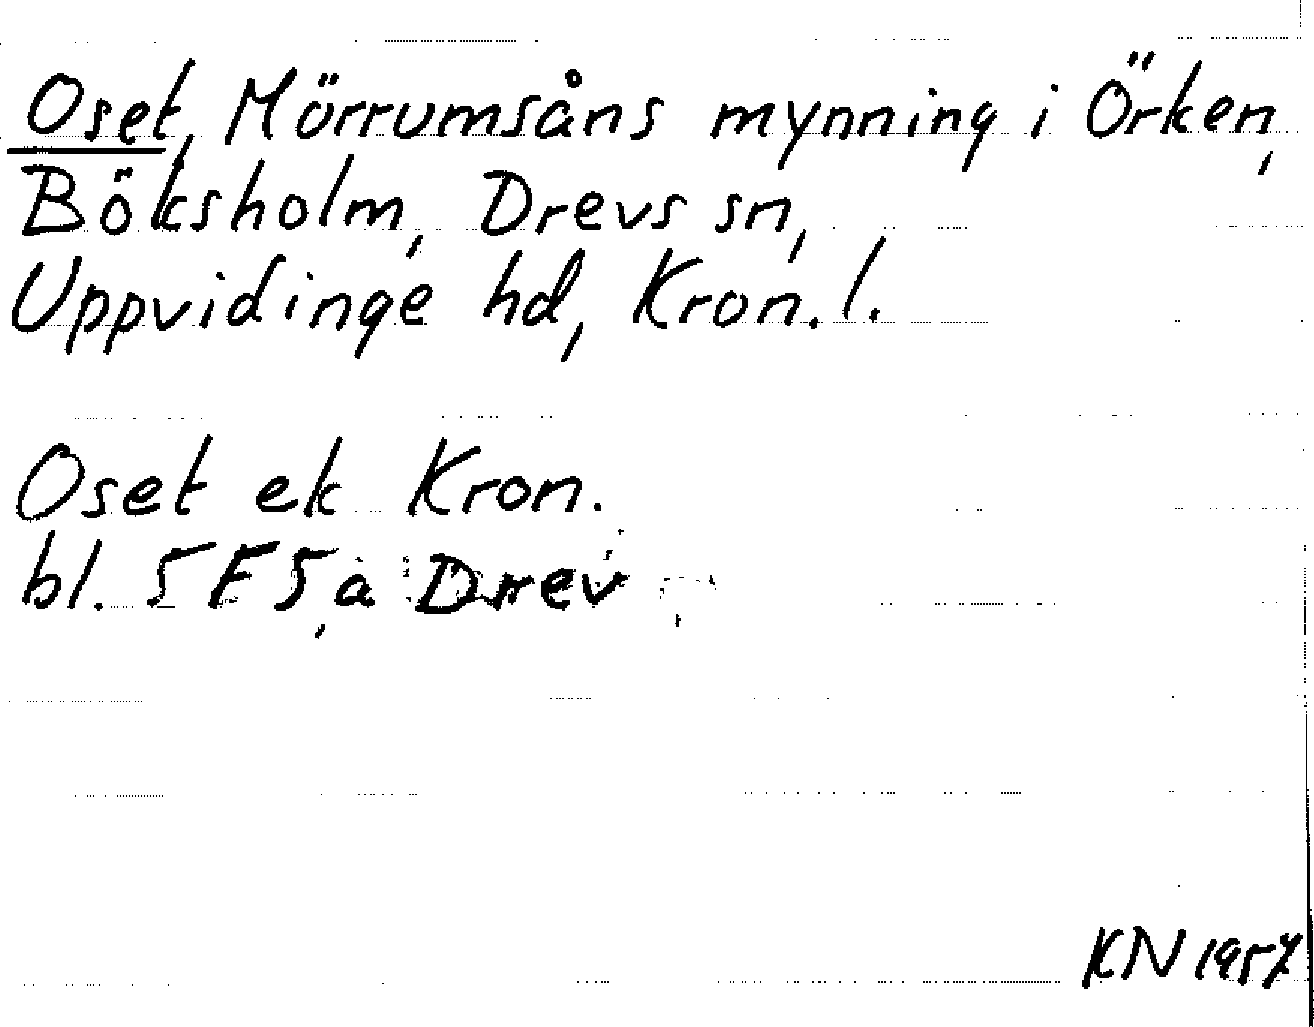 Oset, Mörrumsåns mynning i Örken,
Böksholm, Drevs sn,
Uppvidinge hd, Kron. l.
Oset ek Kron.
bl. 5F5a Drev
KN 1957